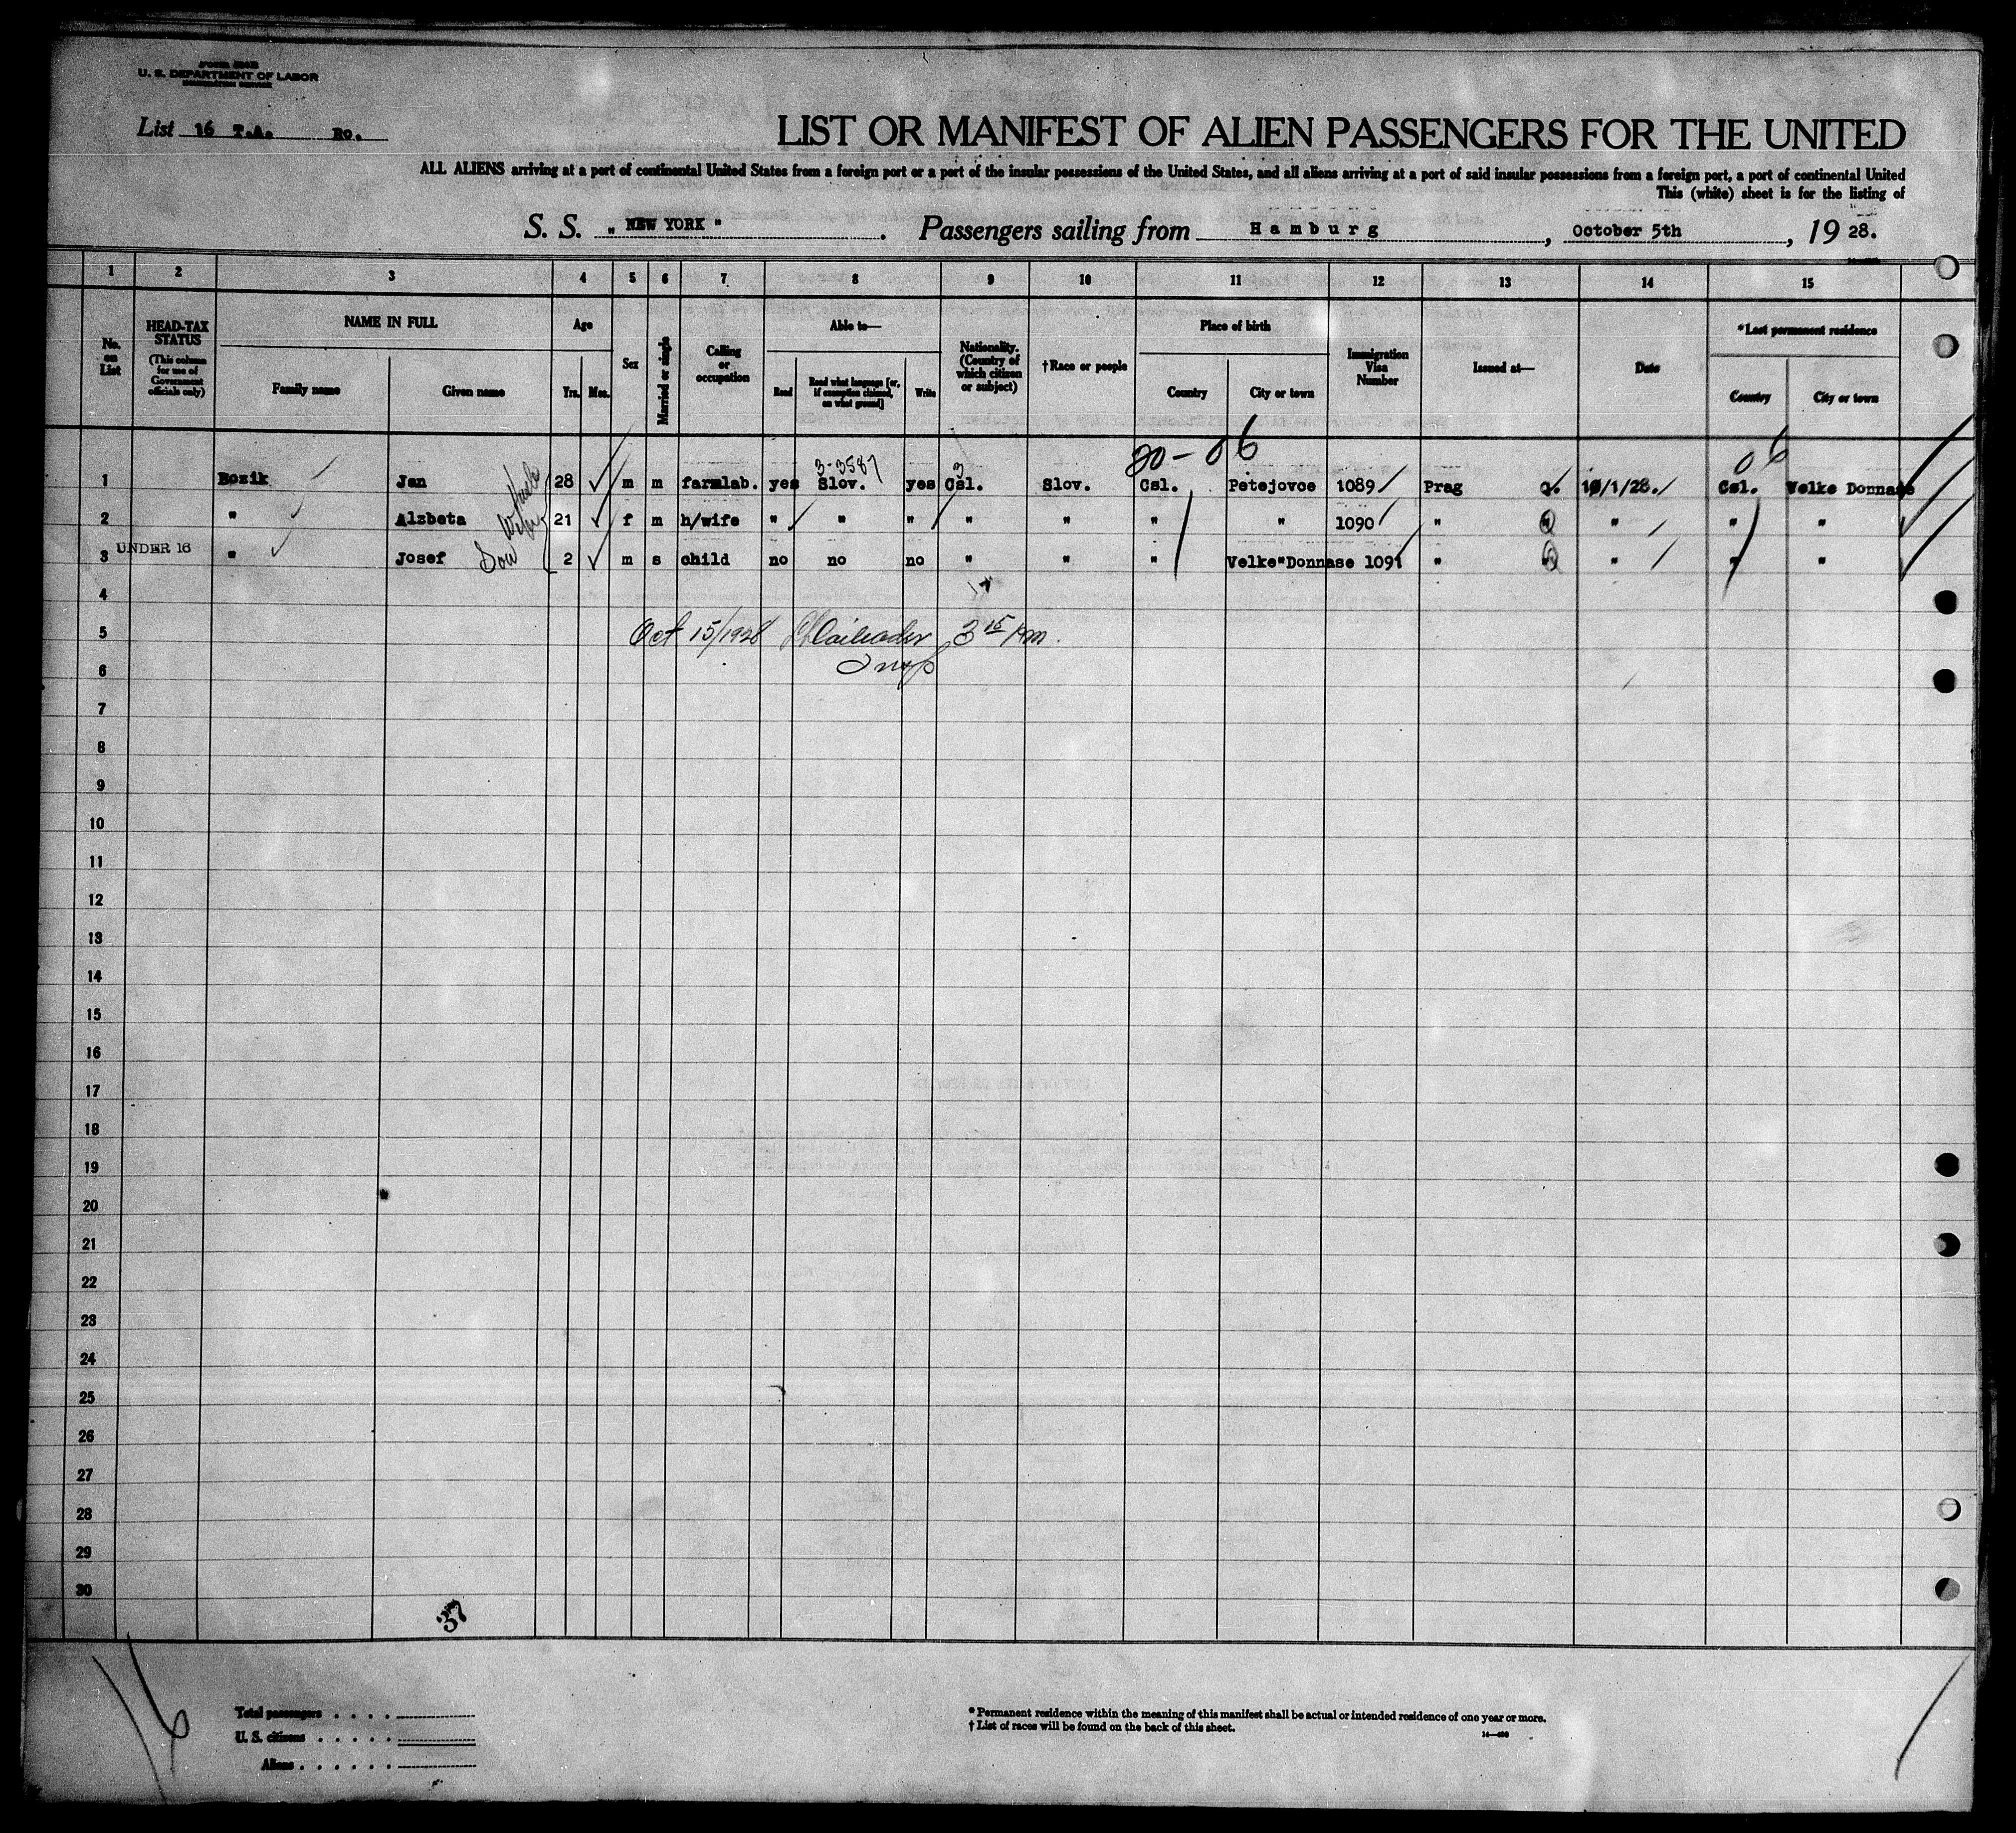 U. S. DEPARTMENT OF LABOR
IMMIGRATION SERVICE
List 16 T.A. Ro.
LIST OR MANIFEST OF ALIEN PASSENGERS FOR THE UNITED
ALL ALIENS arriving at a port of continental United States from a foreign port or a port of the insular possessions of the United States, and all aliens arriving at a port of said insular possessions from a foreign port, a port of continental United
This (white) sheet is for the listing of
S. S. „ NEW YORK " . Passengers sailing from Hamburg , October 5th , 19 28.
1 2 3 4 5 6 7 8 9 10 11 12 13 14 15
No. on List
HEAD-TAX STATUS (This column for use of Government officials only)
NAME IN FULL
Family name Given name
Age
Yrs. Mos.
Sex
Married or single
Calling or occupation
Able to—
Read Read what language [or, if exemption claimed, on what ground] Write
Nationality. (Country of which citizen or subject)
† Race or people
Place of birth
Country City or town
Immigration Visa Number
Issued at—
Date
*Last permanent residence
Country City or town
20 - 06 06
3-3587 3
1 Bozik Jan 28 m m farmlab. yes Slov. yes Csl. Slov. Csl. Petejovce 1089 Prag Q. 10/1/28. Csl. Velke Donnase
2 " Alzbeta Wife 21 f m h/wife " " " " " " " 1090 " Q " " "
UNDER 16
3 " Josef Son 2 m s child no no no " " " Velke"Donnase 1091 " Q " " "
4
5 Oct 15/1928 3 15 pm.
6 Insp
7
8
9
10
11
12
13
14
15
16
17
18
19
20
21
22
23
24
25
26
27
28
29
30
37
16
Total passengers . . . .
U. S. citizens . . . . .
Aliens . . . . . .
* Permanent residence within the meaning of this manifest shall be actual or intended residence of one year or more.
† List of races will be found on the back of this sheet.